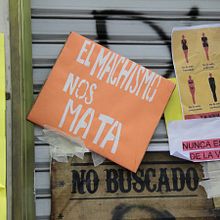 EL MACHISMO
NOS
MATA
NUNCA E
DE LA V
NO BUSCADO